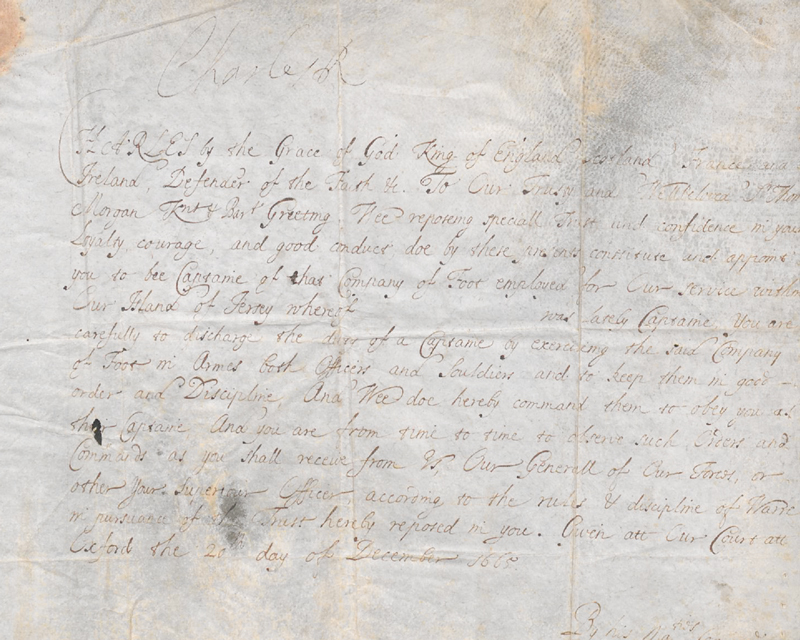 Charles R
CHARLES by the Grace of God King of England Scotland France and
Ireland, Defender of the Faith &c. To Our Trusty and Welbeloved Sr Tho
Morgan Knt & Bart Greeting. Wee reposing speciall Trust and confidence in your
Loyalty, courage, and good conduct doe by these presents constitute and appoint
you to bee Captaine of that Company of Foot employed for Our Service within
Our Island of Jersey whereof was lately Captaine. You are
carefully to discharge the duty of a Captaine by exerciseing the said Company
of Foot in Armes both Officers and Souldiers and to keep them in good -
order and Discipline, And Wee doe hereby command them to obey you as
their Captaine. And you are from time to time to observe such Orders and
Commands as you shall receive from Us, Our Generall of Our Forces, or
other your Superiour Officer according to the rules & discipline of Warre
in pursuance of the Trust hereby reposed in you. Given att Our Court att
Oxford the 20th day of December 1665.
By his Maties